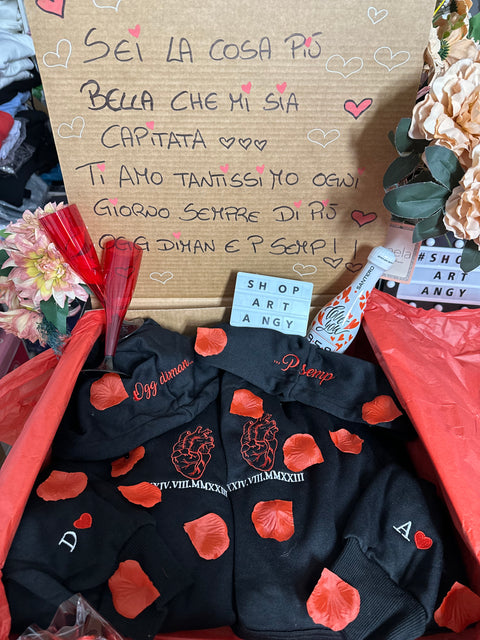 SEI LA COSA PIÙ
BELLA CHE MI SIA
CAPITATA
TI AMO TANTISSIMO OGNI
GIORNO SEMPRE DI PIÙ
OGGI DIMAN E P SEMP!!
SHOP
ART
ANGY
#SHOP
ART
ANGY
SANTERO
958
Ogg diman...
...P semp
XXIV.VIII.MMXXIII
XXIV.VIII.MMXXIII
D
A